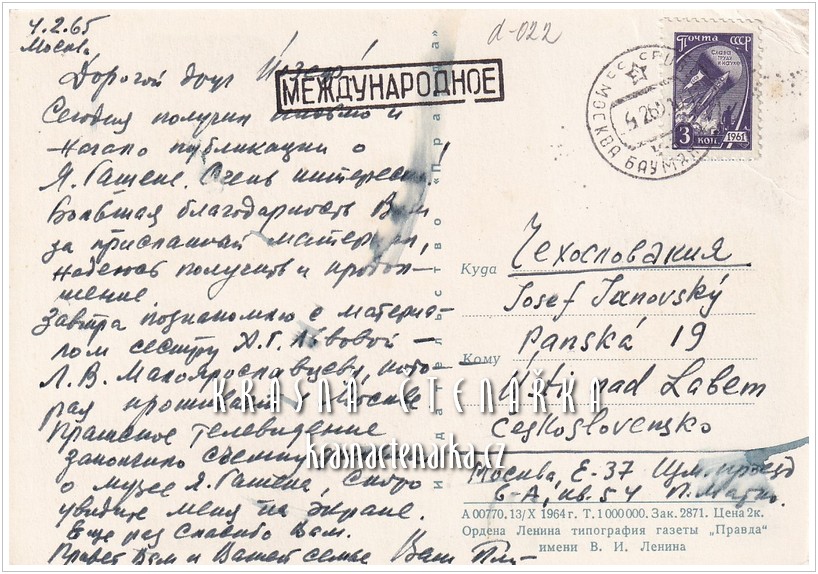 4.2.65
Москва
d-022
Дорогой друг
МЕЖДУНАРОДНОЕ
Почта СССР
СЛАВА
ТРУДУ
И НАУКЕ
3 КОП. 1961
МОСКВА
Сегодня получил письмо и
начало публикации о
Я. Гашеке. Очень интересно!
Большая благодарность Вам
за присланный материал,
надеюсь получить и продол-
жение.
Завтра познакомлю с материа-
лом сестру Х.Г. Львовой –
Л.В. Малоярославцеву, кото-
рая проживает в Москве
Пражское телевидение
закончило съемку
о музее Я. Гашека, скоро
увидите меня на экране.
Еще раз спасибо Вам.
Привет Вам и Вашей семье Ваш
Издательство «Правда»
Куда Чехословакия
Josef Janovský
Panská 19
Кому
Ústi nad Labem
Československo
Москва, Е-37
6-А, кв. 54
А 00770. 13/X 1964 г. Т. 1 000 000. Зак. 2871. Цена 2к.
Ордена Ленина типография газеты „Правда“
имени В. И. Ленина
KRÁSNÁ ČTENÁŘKA
krasnactenarka.cz